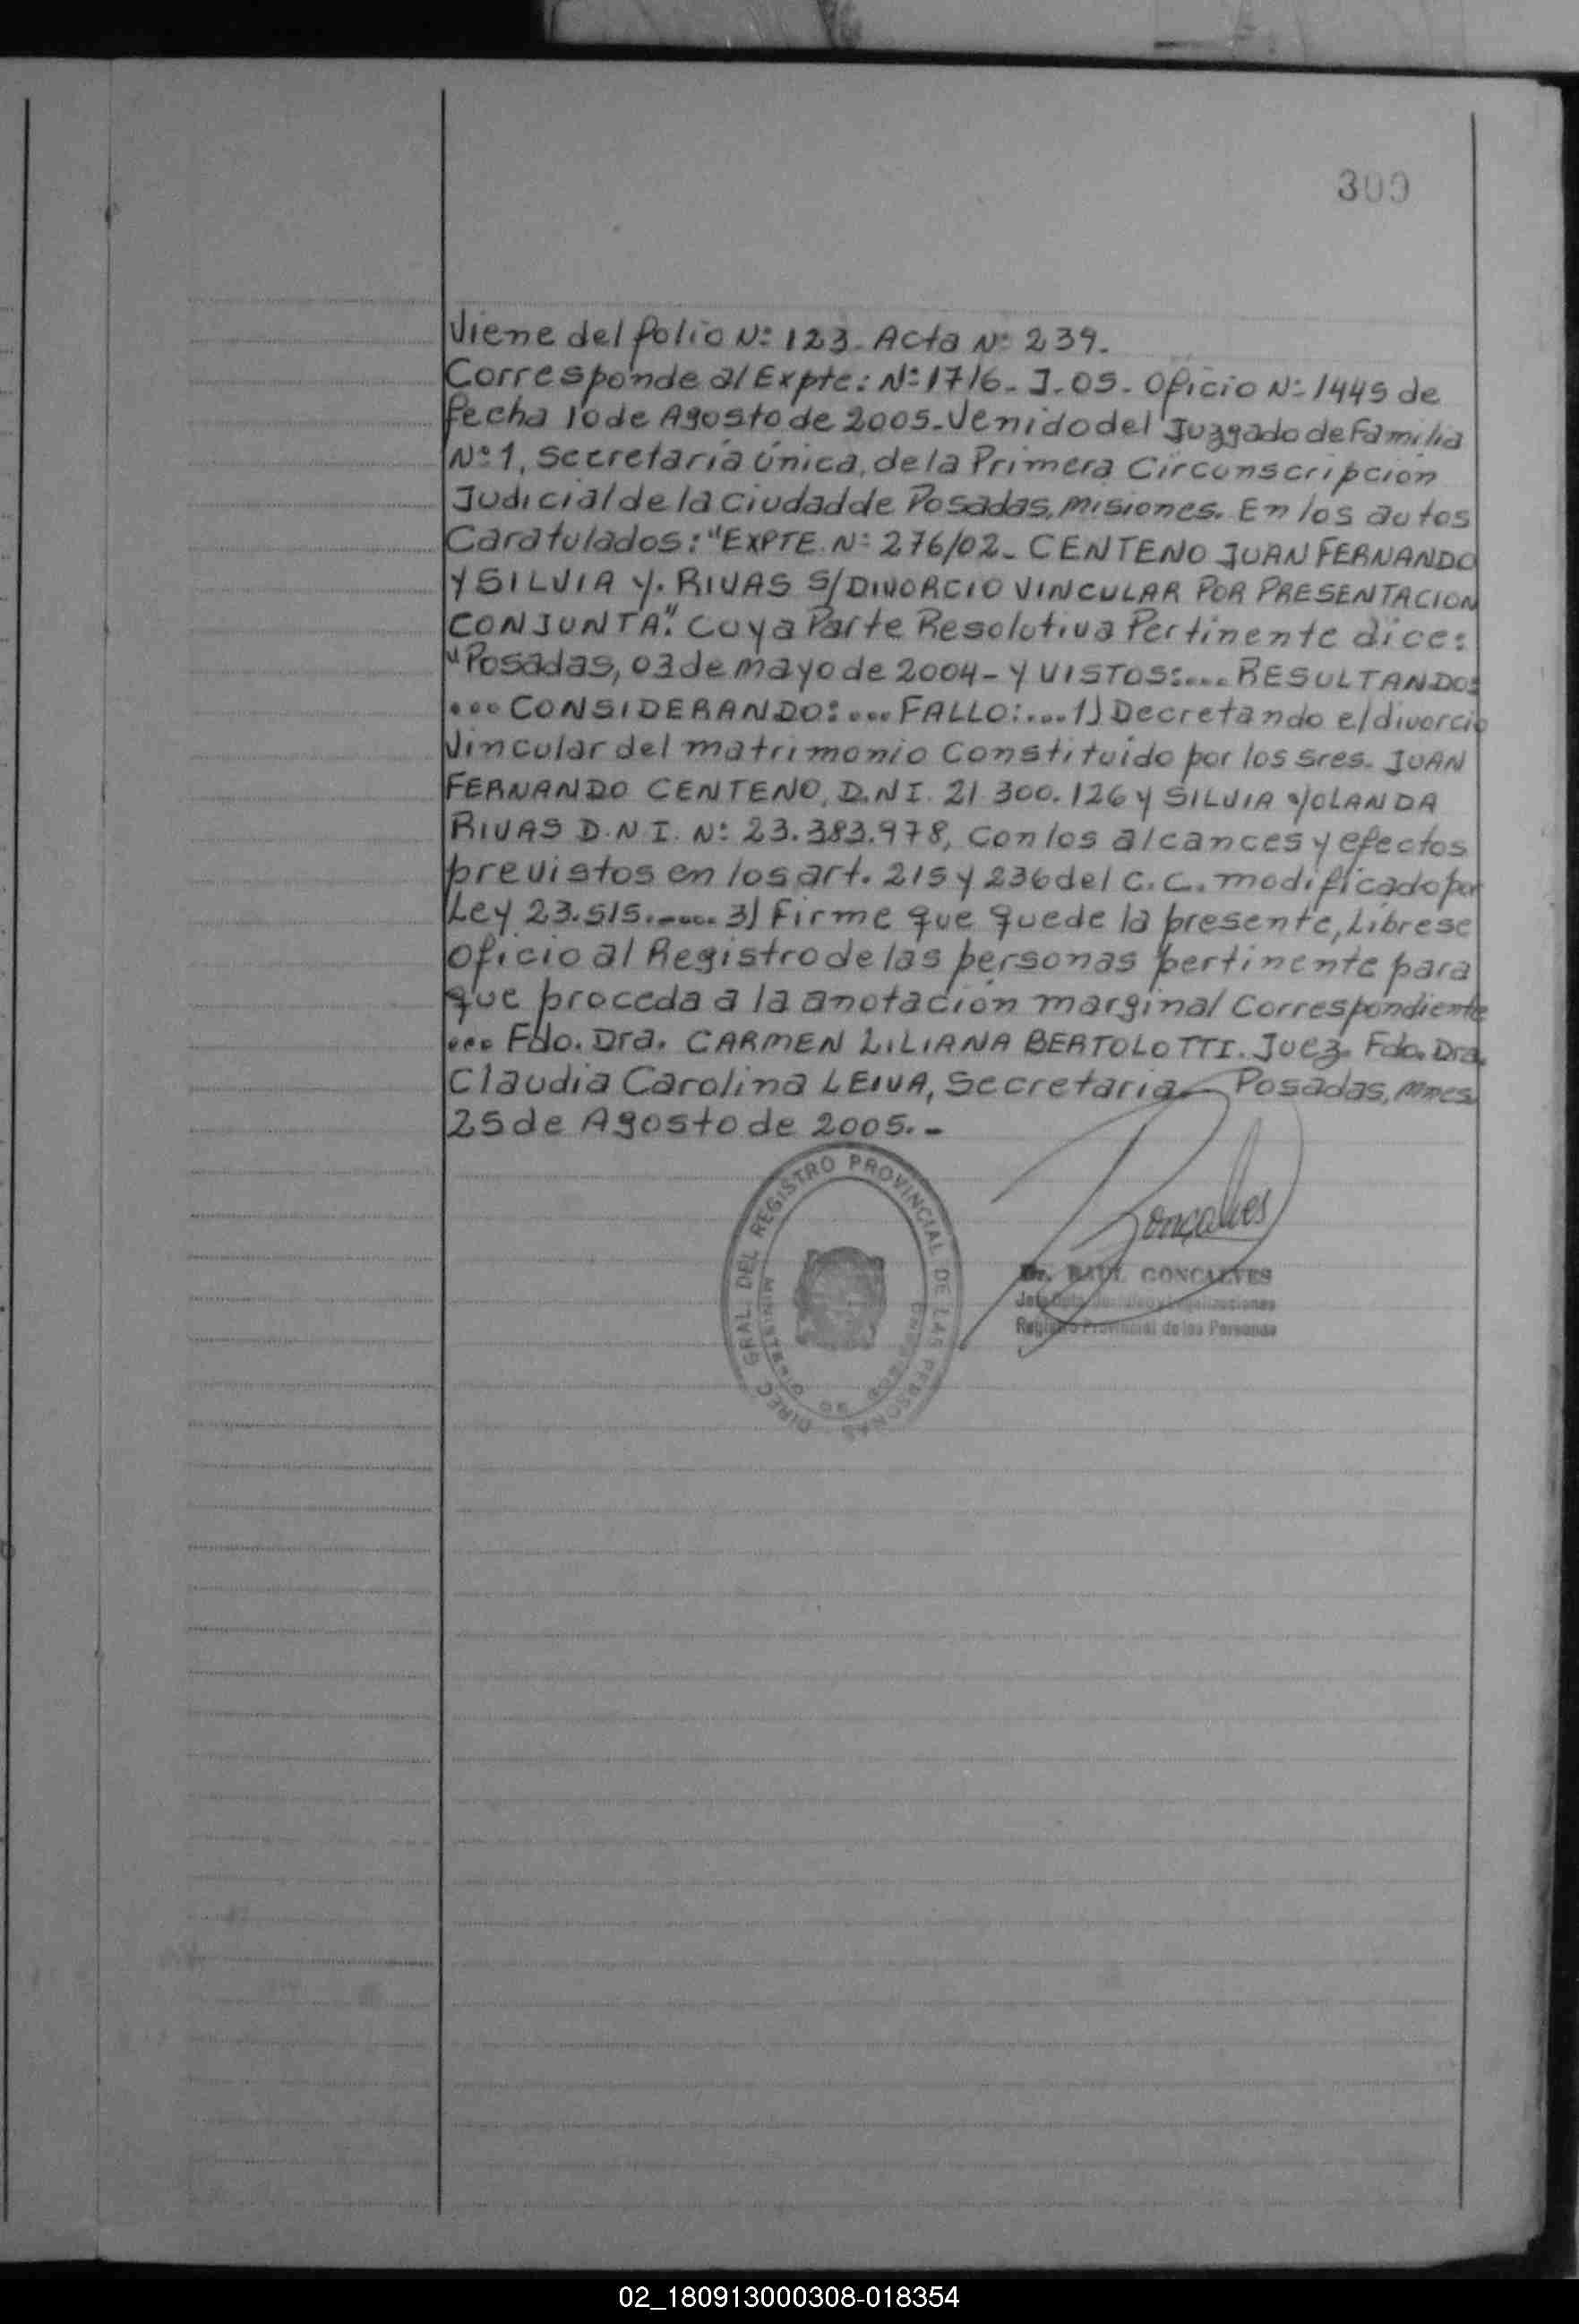 300
Viene del folio Nº 123. Acta Nº 239.
Corresponde al Expte: Nº 1716-J-05- Oficio Nº 1445 de
fecha 10 de Agosto de 2005.- Venido del Juzgado de Familia
Nº 1, Secretaría Única, de la Primera Circunscripción
Judicial de la Ciudad de Posadas, Misiones. En los autos
Caratulados: "EXPTE. Nº 276/02- CENTENO JUAN FERNANDO
Y SILVIA Y. RIVAS S/DIVORCIO VINCULAR POR PRESENTACION
CONJUNTA". Cuya Parte Resolutiva Pertinente dice:
"Posadas, 03 de mayo de 2004- Y VISTOS:... RESULTANDO:
...CONSIDERANDO:...FALLO:...1) Decretando el divorcio
Vincular del matrimonio Constituído por los Sres. JUAN
FERNANDO CENTENO, D.N.I. 21.300.126 y SILVIA YOLANDA
RIVAS D.N.I. Nº 23.383.978, Con los alcances y efectos
previstos en los art. 215 y 236 del C.C. modificado por
Ley 23.515.-.... 3) Firme que quede la presente, Líbrese
Oficio al Registro de las personas pertinente para
que proceda a la anotación marginal Correspondiente
... Fdo. Dra. CARMEN LILIANA BERTOLOTTI. Juez. Fdo. Dra.
Claudia Carolina LEIVA, Secretaria.- Posadas, Mnes
25 de Agosto de 2005.-
DIREC. GRAL. DEL REGISTRO PROVINCIAL DE LAS PERSONAS
MINISTERIO DE GOBIERNO
Gonçalves
Dr. RAUL GONCALVES
Registro Provincial de las Personas
02_180913000308-018354